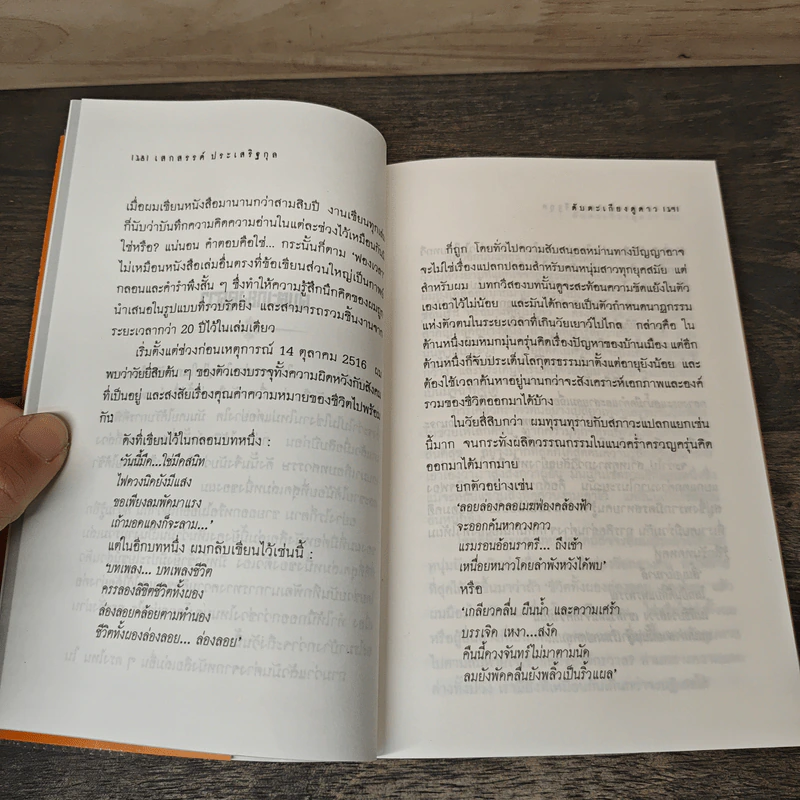 เสกสรรค์ ประเสริฐกุล
เมื่อผมเขียนหนังสือมานานกว่าสามสิบปี งานเขียนทุกเล่ม
ก็นับว่าบันทึกความคิดความอ่านในแต่ละช่วงไว้เหมือนกันมิ
ใช่หรือ? แน่นอน คำตอบคือใช่... กระนั้นก็ตาม 'ฟองเวลา'
ไม่เหมือนหนังสือเล่มอื่นตรงที่ข้อเขียนส่วนใหญ่เป็นกาพย์
กลอนและคำรำพึงสั้น ๆ ซึ่งทำให้ความรู้สึกนึกคิดของผมถูก
นำเสนอในรูปแบบที่รวบรัดยิ่ง และสามารถรวมชิ้นงานจาก
ระยะเวลากว่า 20 ปีไว้ในเล่มเดียว
เริ่มตั้งแต่ช่วงก่อนเหตุการณ์ 14 ตุลาคม 2516 ผม
พบว่าวัยยี่สิบต้น ๆ ของตัวเองบรรจุทั้งความผิดหวังกับสังคม
ที่เป็นอยู่ และสงสัยเรื่องคุณค่าความหมายของชีวิตไปพร้อม
กัน
ดังที่เขียนไว้ในกลอนบทหนึ่ง :
'วันนี้มืด...ใช่มืดสนิท
ไฟดวงนิดยังมีแสง
ขอเพียงลมพัดมาแรง
เถ้ามอดแดงก็จะลาม...'
แต่ในอีกบทหนึ่ง ผมกลับเขียนไว้เช่นนี้ :
'บทเพลง... บทเพลงชีวิต
ครรลองลิขิตชีวิตทั้งผอง
ล่องลอยคล้อยตามทำนอง
ชีวิตทั้งผองล่องลอย... ล่องลอย'
ดับตะเกียงดูดาว
ก็ถูก โดยทั่วไปความสับสนอลหม่านทางปัญญาอาจ
จะไม่ใช่เรื่องแปลกปลอมสำหรับคนหนุ่มสาวทุกยุคสมัย แต่
สำหรับผม บทกวีสองบทนั้นดูจะสะท้อนความขัดแย้งในตัว
เองเอาไว้ไม่น้อย และมันได้กลายเป็นตัวกำหนดนาฏกรรม
แห่งตัวตนในระยะเวลาที่เกินวัยเยาว์ไปไกล กล่าวคือ ใน
ด้านหนึ่งผมหมกมุ่นครุ่นคิดเรื่องปัญหาของบ้านเมือง แต่อีก
ด้านหนึ่งก็จับประเด็นโลกุตรธรรมมาตั้งแต่อายุยังน้อย และ
ต้องใช้เวลาค้นหาอยู่นานกว่าจะสังเคราะห์เอกภาพและองค์
รวมของชีวิตออกมาได้บ้าง
ในวัยสี่สิบกว่า ผมทุรนทุรายกับสภาวะแปลกแยกเช่น
นี้มาก จนกระทั่งผลิตวรรณกรรมในแนวคร่ำครวญครุ่นคิด
ออกมาได้มากมาย
ยกตัวอย่างเช่น
'ลอยล่องคลอเมฆฟ่องคล้องฟ้า
จะออกค้นหาดวงดาว
แรมรอนอ้อนราตรี... ถึงเช้า
เหนื่อยหนาวโดยลำพังหวังได้พบ'
หรือ
'เกลียวคลื่น ผืนน้ำ และความเศร้า
บรรเจิด เหงา...สงัด
คืนนี้ดวงจันทร์ไม่มาตามนัด
ลมยังพัดคลื่นยังพลิ้วเป็นริ้วแผล'